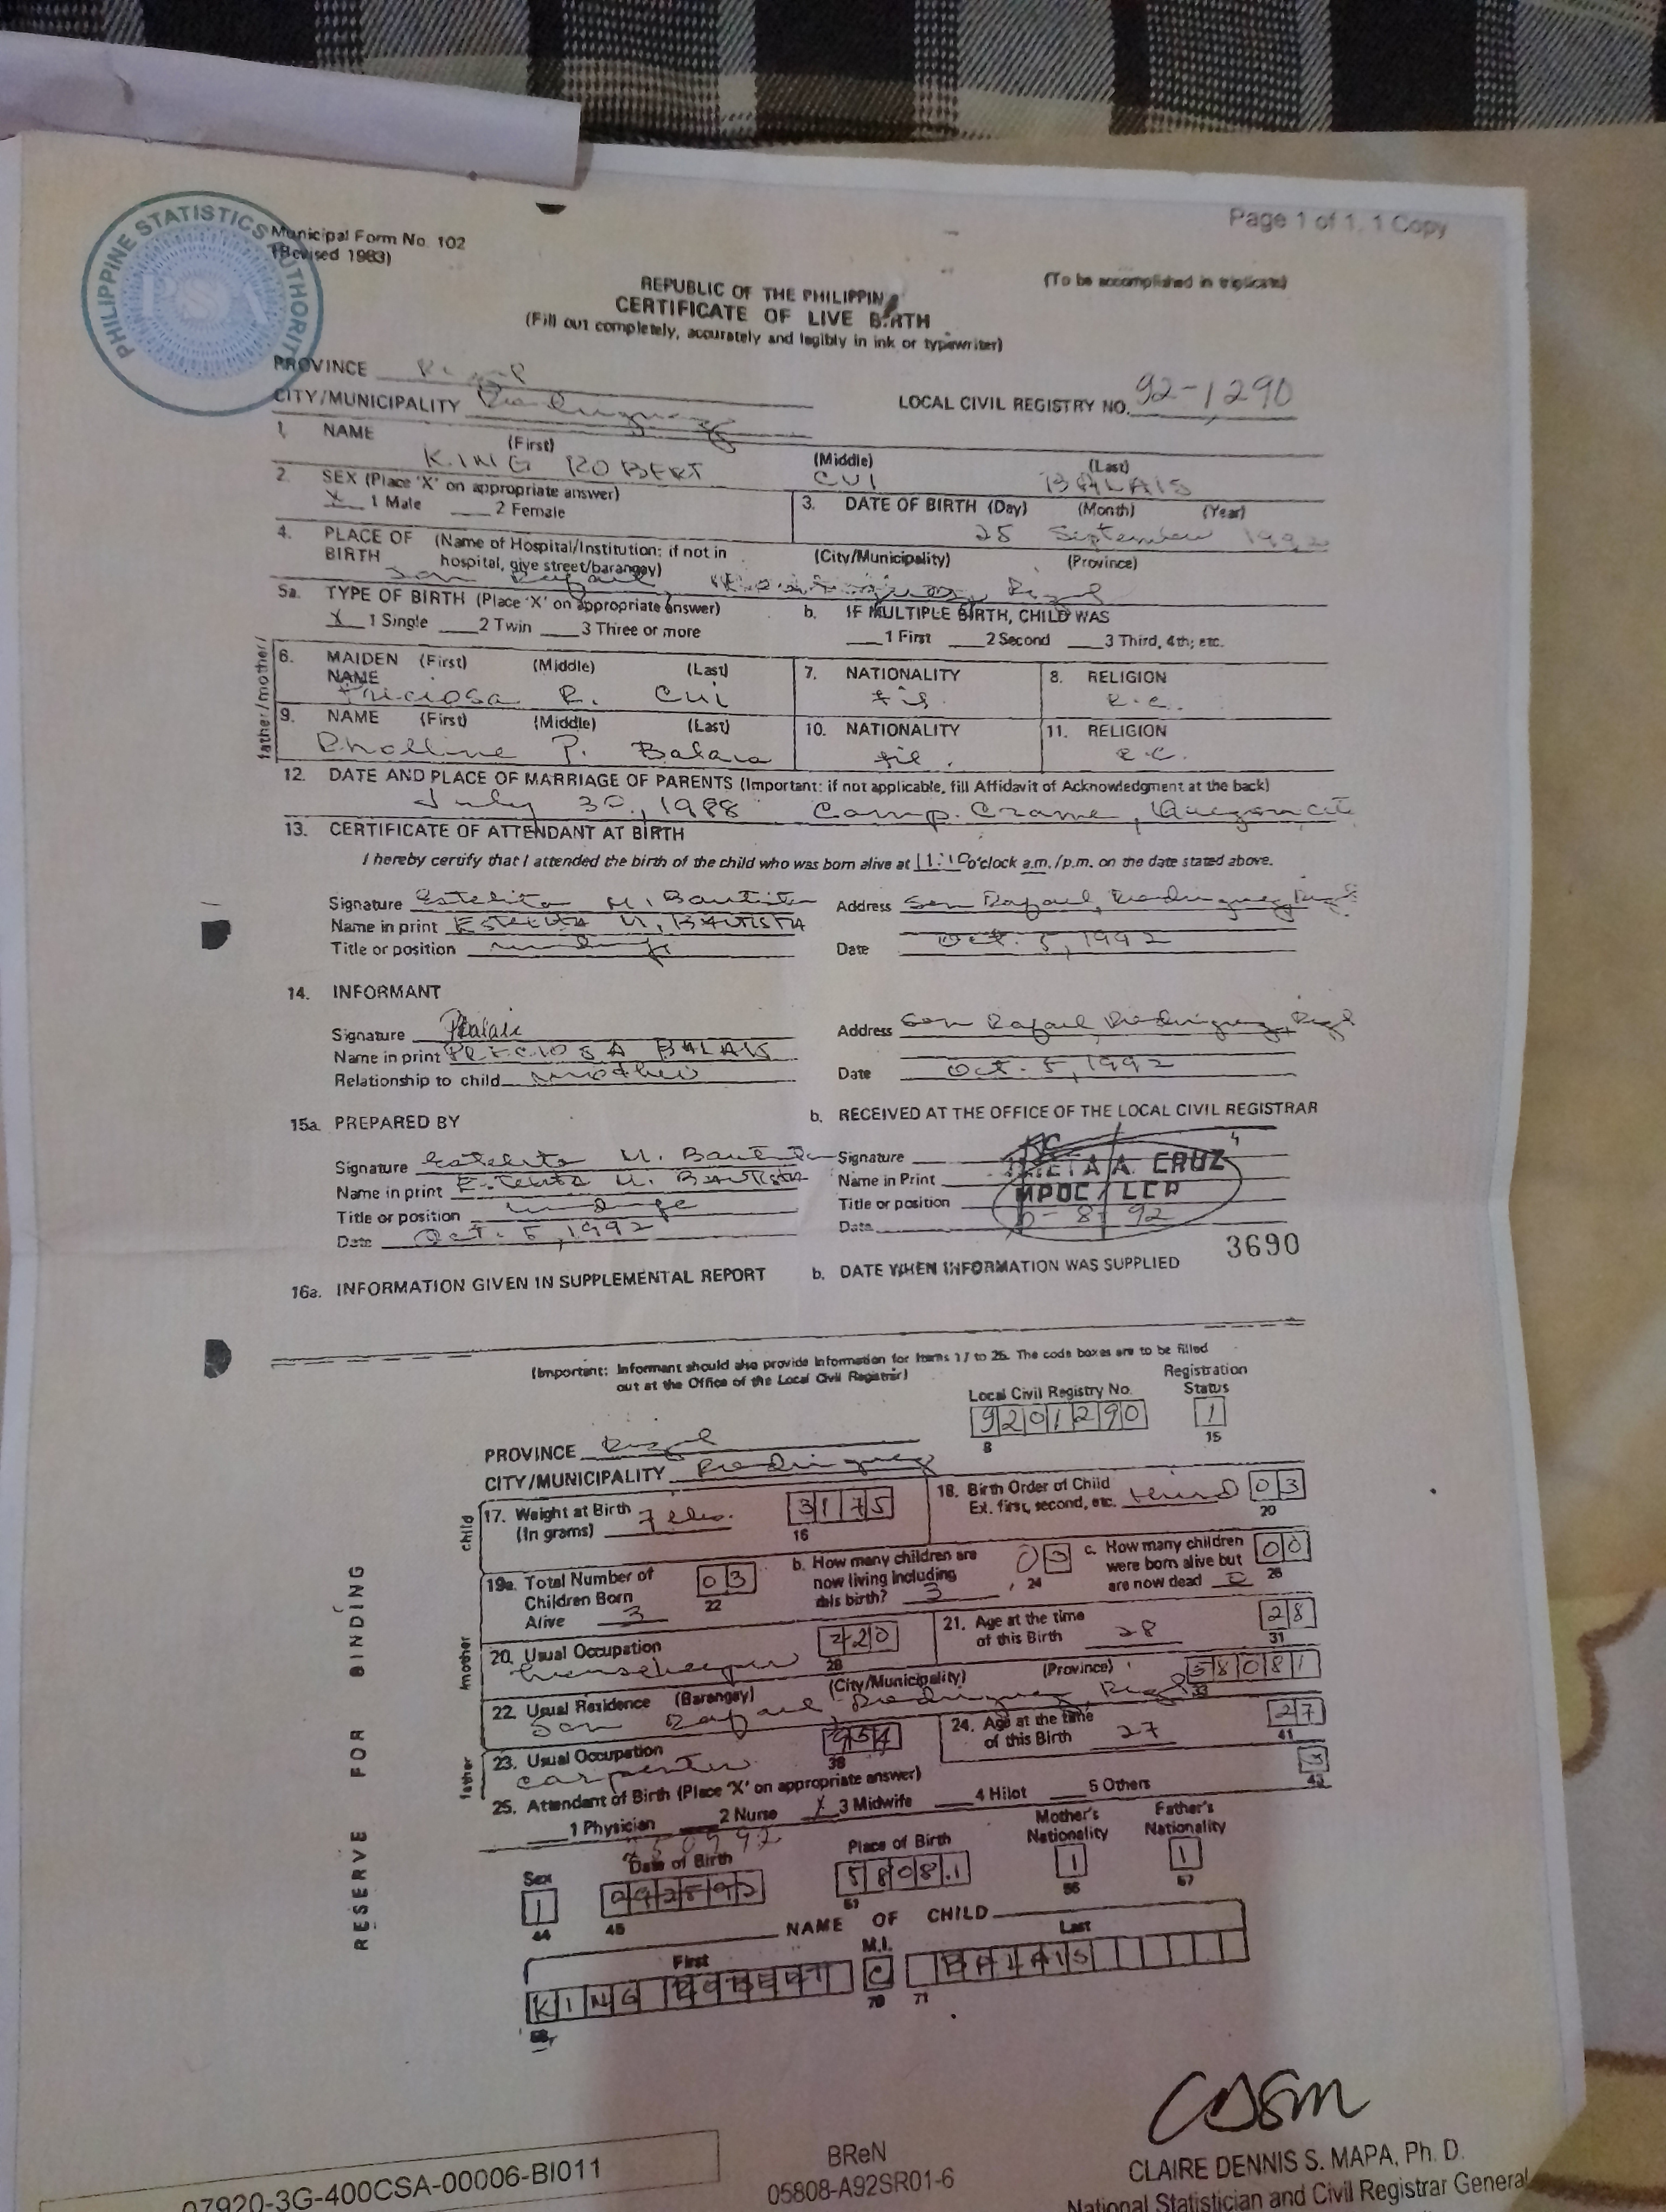 Page 1 of 1, 1 Copy
PHILIPPINE STATISTICS AUTHORITY
PSA
Municipal Form No. 102
(Revised 1983)
(To be accomplished in triplicate)
REPUBLIC OF THE PHILIPPIN
CERTIFICATE OF LIVE BIRTH
(Fill out completely, accurately and legibly in ink or typewriter)
PROVINCE Rizal
CITY/MUNICIPALITY Rodriguez LOCAL CIVIL REGISTRY NO. 92-1290
1. NAME (First) (Middle) (Last)
KING ROBERT CUI BALAIS
2. SEX (Place 'X' on appropriate answer) 3. DATE OF BIRTH (Day) (Month) (Year)
X 1 Male 2 Female 25 September 1992
4. PLACE OF BIRTH (Name of Hospital/Institution; if not in hospital, give street/barangay) (City/Municipality) (Province)
San Rafael Rodriguez, Rizal
5a. TYPE OF BIRTH (Place 'X' on appropriate answer) b. IF MULTIPLE BIRTH, CHILD WAS
X 1 Single 2 Twin 3 Three or more 1 First 2 Second 3 Third, 4th; etc.
father/mother
6. MAIDEN NAME (First) (Middle) (Last) 7. NATIONALITY 8. RELIGION
Priciosa R. Cui fil. R.C.
9. NAME (First) (Middle) (Last) 10. NATIONALITY 11. RELIGION
P. Balais fil. R.C.
12. DATE AND PLACE OF MARRIAGE OF PARENTS (Important: if not applicable, fill Affidavit of Acknowledgment at the back)
July 30, 1988 Camp. Crame, Quezon cit
13. CERTIFICATE OF ATTENDANT AT BIRTH
I hereby certify that I attended the birth of the child who was born alive at 11:10 o'clock a.m./p.m. on the date stated above.
Signature Estelita M. Bautista Address San Rafael, Rodriguez, Rizal
Name in print ESTELITA M. BAUTISTA
Title or position midwife Date Oct. 5, 1992
14. INFORMANT
Signature PBalais Address San Rafael, Rodriguez, Rizal
Name in print PRECIOSA BALAIS
Relationship to child mother Date Oct. 5, 1992
15a. PREPARED BY b. RECEIVED AT THE OFFICE OF THE LOCAL CIVIL REGISTRAR
Signature Estelita M. Bautista Signature
Name in print Estelita M. BAUTISTA Name in Print A. CRUZ
Title or position midwife Title or position MPDC / LCR
Date Oct. 5, 1992 Date 8 92
3690
16a. INFORMATION GIVEN IN SUPPLEMENTAL REPORT b. DATE WHEN INFORMATION WAS SUPPLIED
(Important: Informant should also provide information for items 17 to 25. The code boxes are to be filled
out at the Office of the Local Civil Registrar)
Local Civil Registry No. Registration Status
9201290 1
8 15
PROVINCE Rizal
CITY/MUNICIPALITY Rodriguez
child
17. Weight at Birth (In grams) 7 lbs. 3175 16
18. Birth Order of Child Ex. first, second, etc. third 03 20
mother
19a. Total Number of Children Born Alive 3 03 22
b. How many children are now living including this birth? 3 03 24
c. How many children were born alive but are now dead 0 00 26
20. Usual Occupation housekeeper 420 28
21. Age at the time of this Birth 28 28 31
22. Usual Residence (Barangay) (City/Municipality) (Province) 58081 33
San Rafael Rodriguez, Rizal
father
23. Usual Occupation carpenter 954 38
24. Age at the time of this Birth 27 27 41
25. Attendant of Birth (Place 'X' on appropriate answer) 3 43
1 Physician 2 Nurse X 3 Midwife 4 Hilot 5 Others
Sex Date of Birth Place of Birth Mother's Nationality Father's Nationality
1 092592 58081 1 1
44 45 51 56 57
NAME OF CHILD
First M.I. Last
KING ROBERT C BALAIS
58 70 71
RESERVE FOR BINDING
07920-3G-400CSA-00006-BI011
BReN
05808-A92SR01-6
CLAIRE DENNIS S. MAPA, Ph. D.
National Statistician and Civil Registrar General